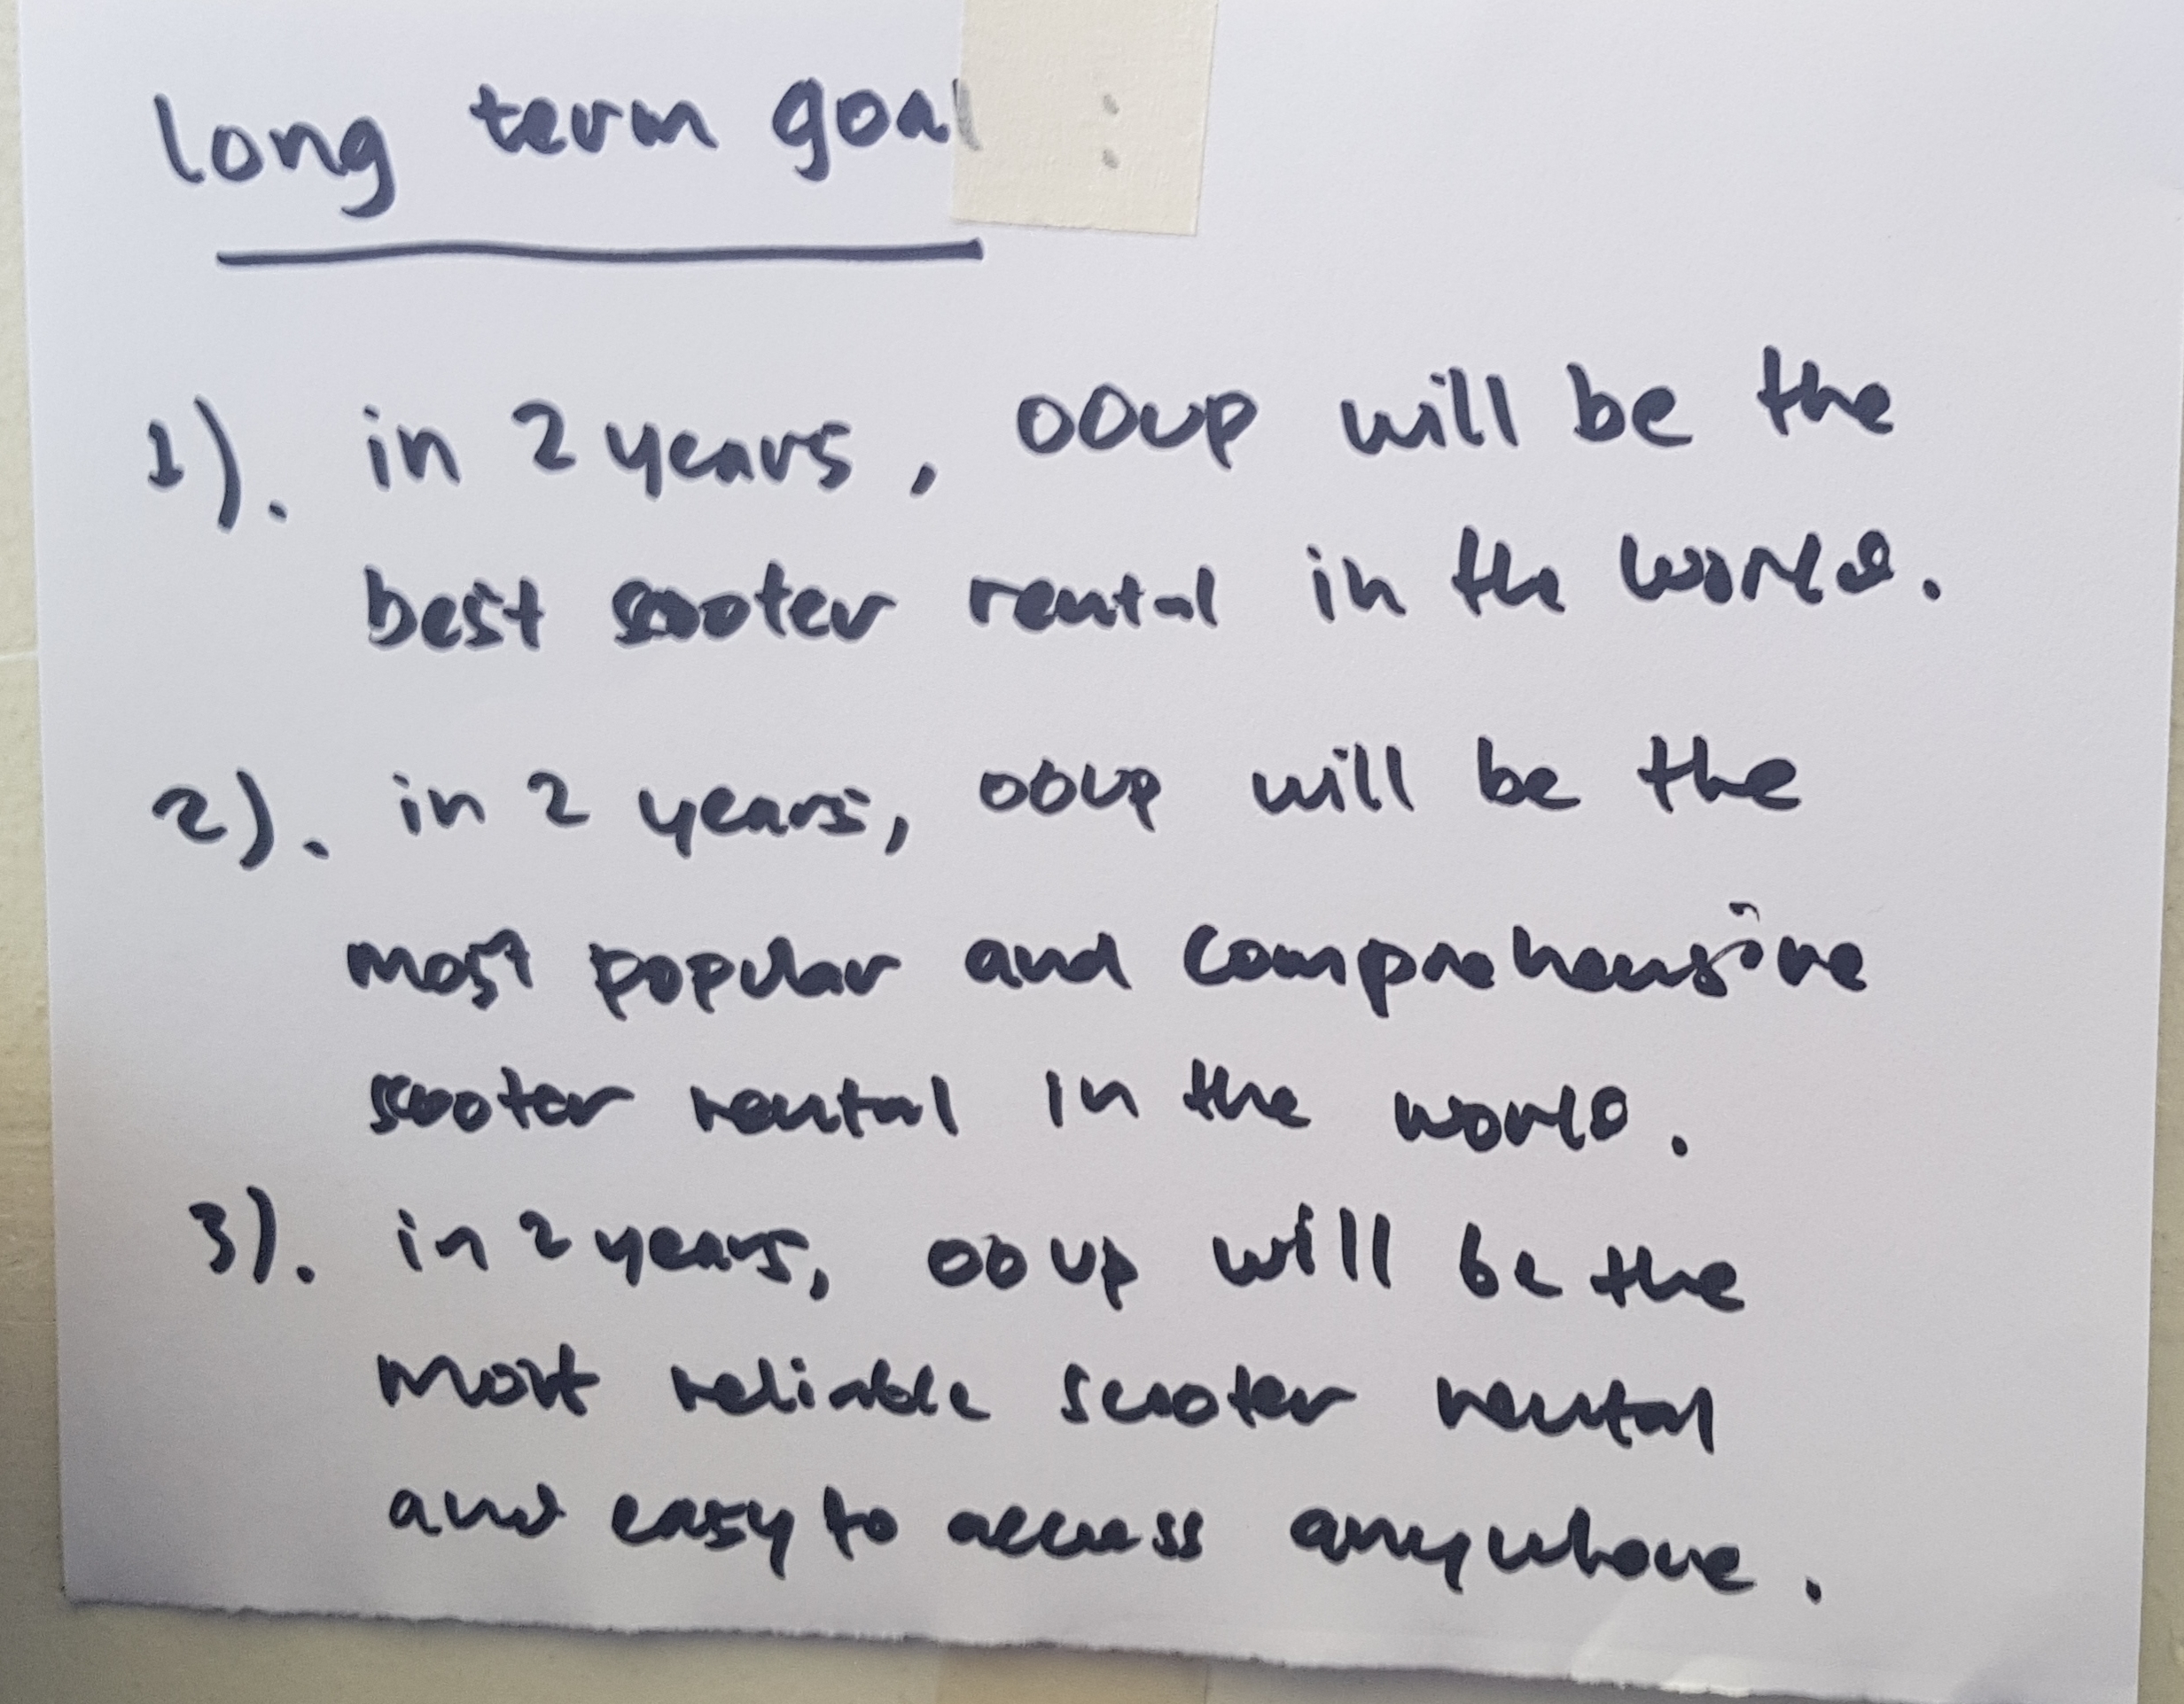 long term goal :
1). in 2 years, OOUP will be the
best scooter rental in the world.
2). in 2 years, OOUP will be the
most popular and comprehensive
scooter rental in the world.
3). in 2 years, OOUP will be the
most reliable scooter rental
and easy to access anywhere.